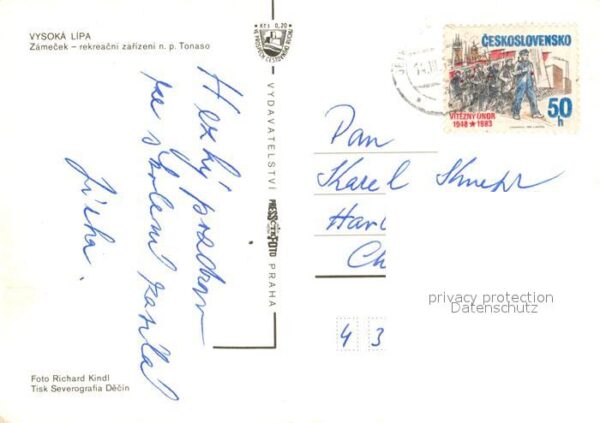 VYSOKÁ LÍPA
Zámeček – rekreační zařízení n. p. Tonaso
Kčs 0,20
ČESKOSLOVENSKO
VÍTĚZNÝ ÚNOR
1948 ★ 1983
50 h
VYDAVATELSTVÍ PRESSFOTO PRAHA
Hezký pozdrav
ze školení zasílá
Jirka.
Pan
Karel
Ch
4 3
privacy protection
Datenschutz
Foto Richard Kindl
Tisk Severografia Děčín